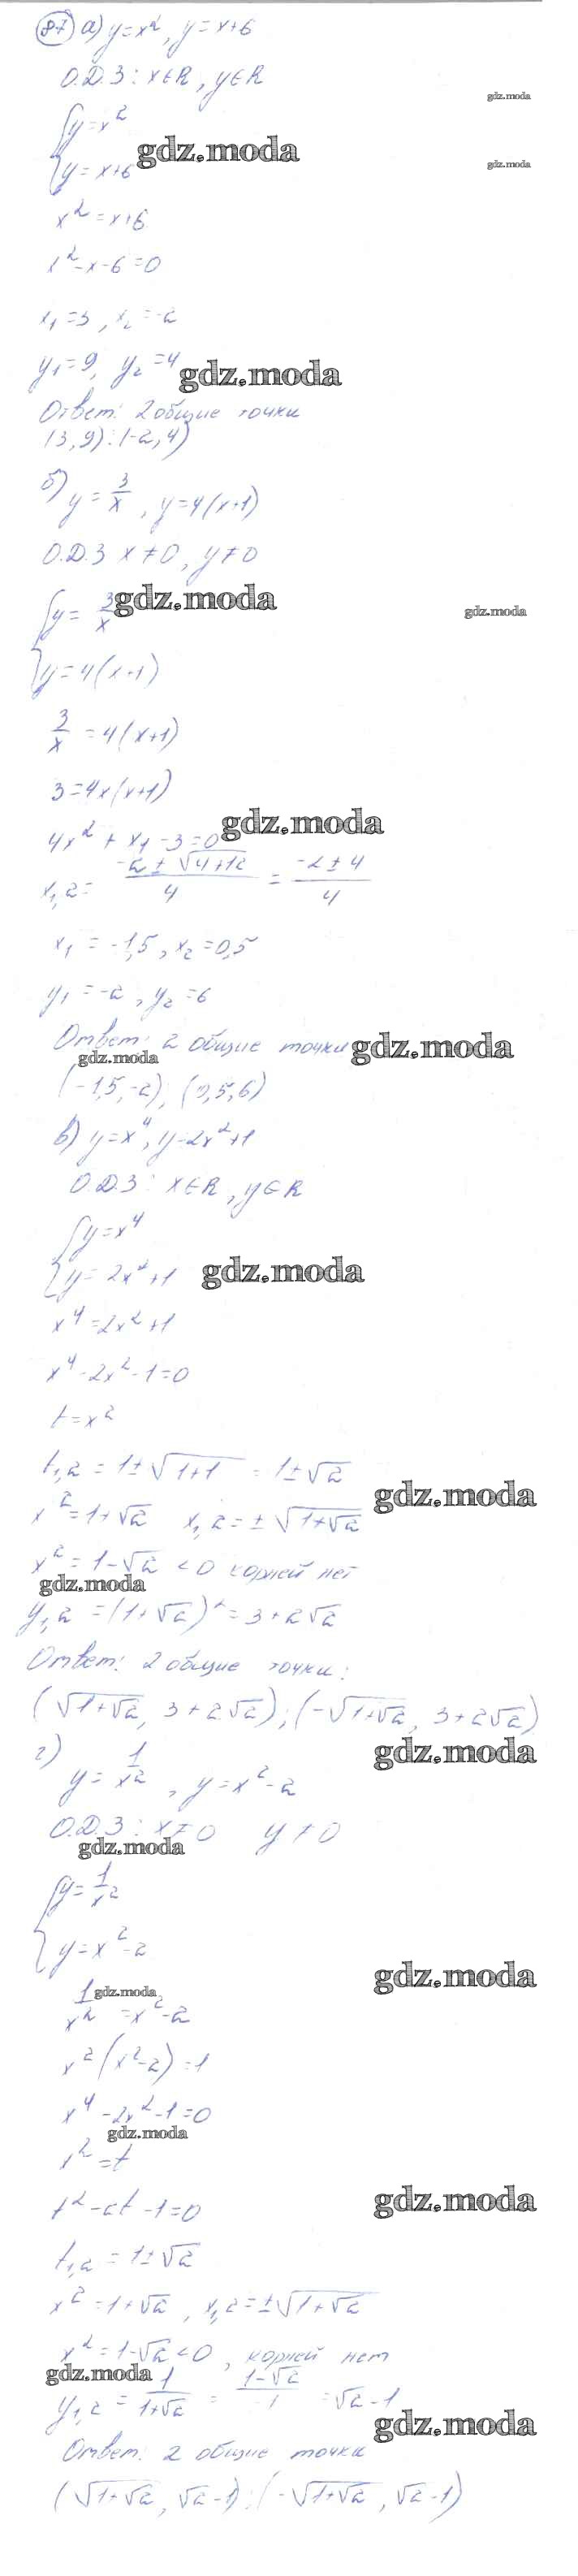 87 а) y=x², y=x+6
О.Д.З: x∈R, y∈R
gdz.moda
{y=x²
gdz.moda
gdz.moda
{y=x+6
x²=x+6
x²-x-6=0
x₁=3, x₂=-2
y₁=9, y₂=4
gdz.moda
Ответ: 2 общие точки
(3,9);(-2,4)
б) y=3/x, y=4(x+1)
О.Д.З x≠0, y≠0
{y=3/x
gdz.moda
gdz.moda
{y=4(x+1)
3/x=4(x+1)
3=4x(x+1)
gdz.moda
4x²+x₁-3=0
x₁,₂= (-2±√(4+12))/4 = (-2±4)/4
x₁=-1,5, x₂=0,5
y₁=-2, y₂=6
Ответ: 2 общие точки
gdz.moda
gdz.moda
(-1,5,-2); (0,5,6)
в) y=x⁴, y=2x²+1
О.Д.З: x∈R, y∈R
{y=x⁴
{y=2x²+1
gdz.moda
x⁴=2x²+1
x⁴-2x²-1=0
t=x²
t₁,₂=1±√(1+1)=1±√2
gdz.moda
x²=1+√2 x₁,₂=±√(1+√2)
x²=1-√2<0 корней нет
gdz.moda
y₁,₂=(1+√2)²=3+2√2
Ответ: 2 общие точки:
(√(1+√2), 3+2√2);(-√(1+√2), 3+2√2)
gdz.moda
г) y=1/x², y=x²-2
О.Д.З: x≠0 y≠0
gdz.moda
{y=1/x²
{y=x²-2
gdz.moda
gdz.moda
1/x²=x²-2
x²(x²-2)=1
x⁴-2x²-1=0
gdz.moda
x²=t
t²-2t-1=0
gdz.moda
t₁,₂=1±√2
x²=1+√2, x₁,₂=±√(1+√2)
x²=1-√2<0, корней нет
gdz.moda
y₁,₂=1/(1+√2)=(1-√2)/-1=√2-1
gdz.moda
Ответ: 2 общие точки
(√(1+√2), √2-1);(-√(1+√2), √2-1)